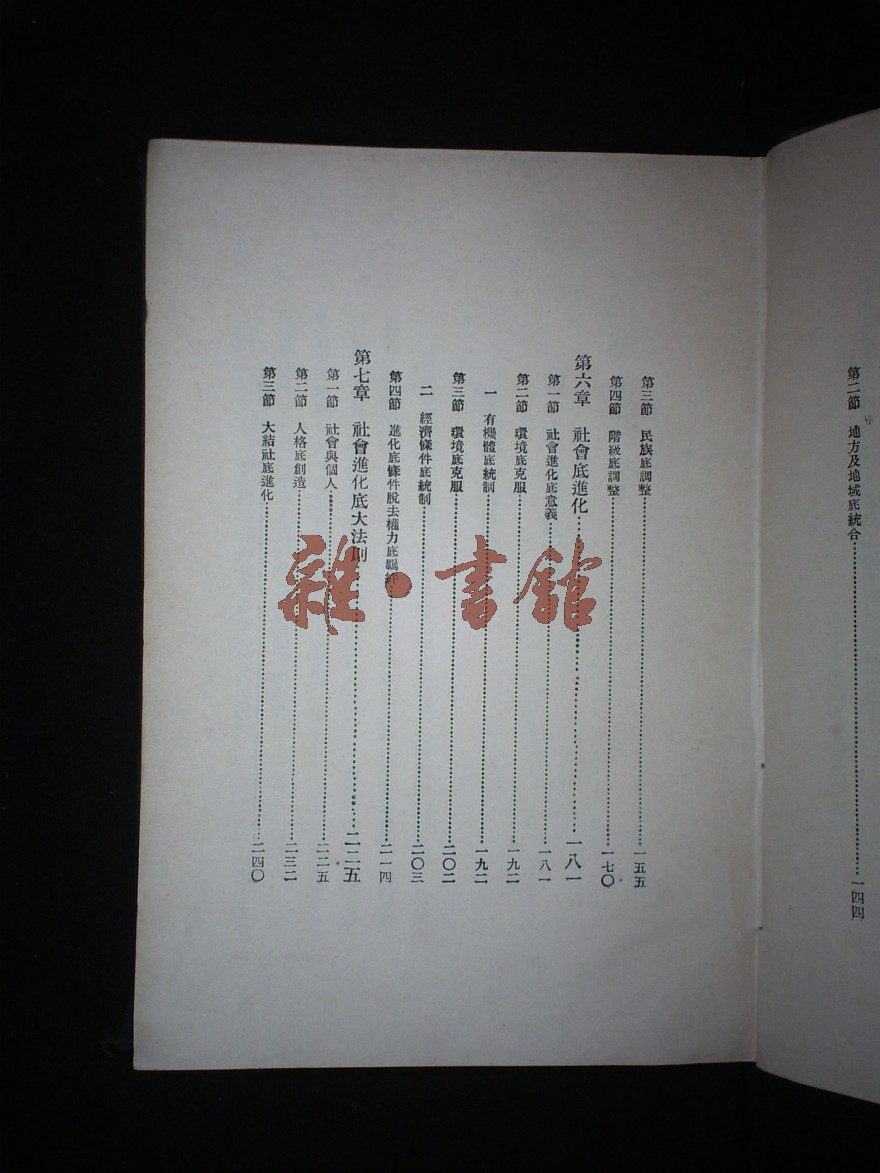 第二節　地方及地域底統合……一四四
第三節　民族底調整……一五五
第四節　階級底調整……一七〇
第六章　社會底進化……一八一
第一節　社會進化底意義……一八一
第二節　環境底克服……一九二
一　有機體底統制……一九二
第三節　環境底克服……二〇二
二　經濟條件底統制……二〇三
第四節　進化底條件脫去權力底羈絆……二一四
第七章　社會進化底大法則……二二五
第一節　社會與個人……二二五
第二節　人格底創造……二三二
第三節　大結社底進化……二四〇
雜·書館